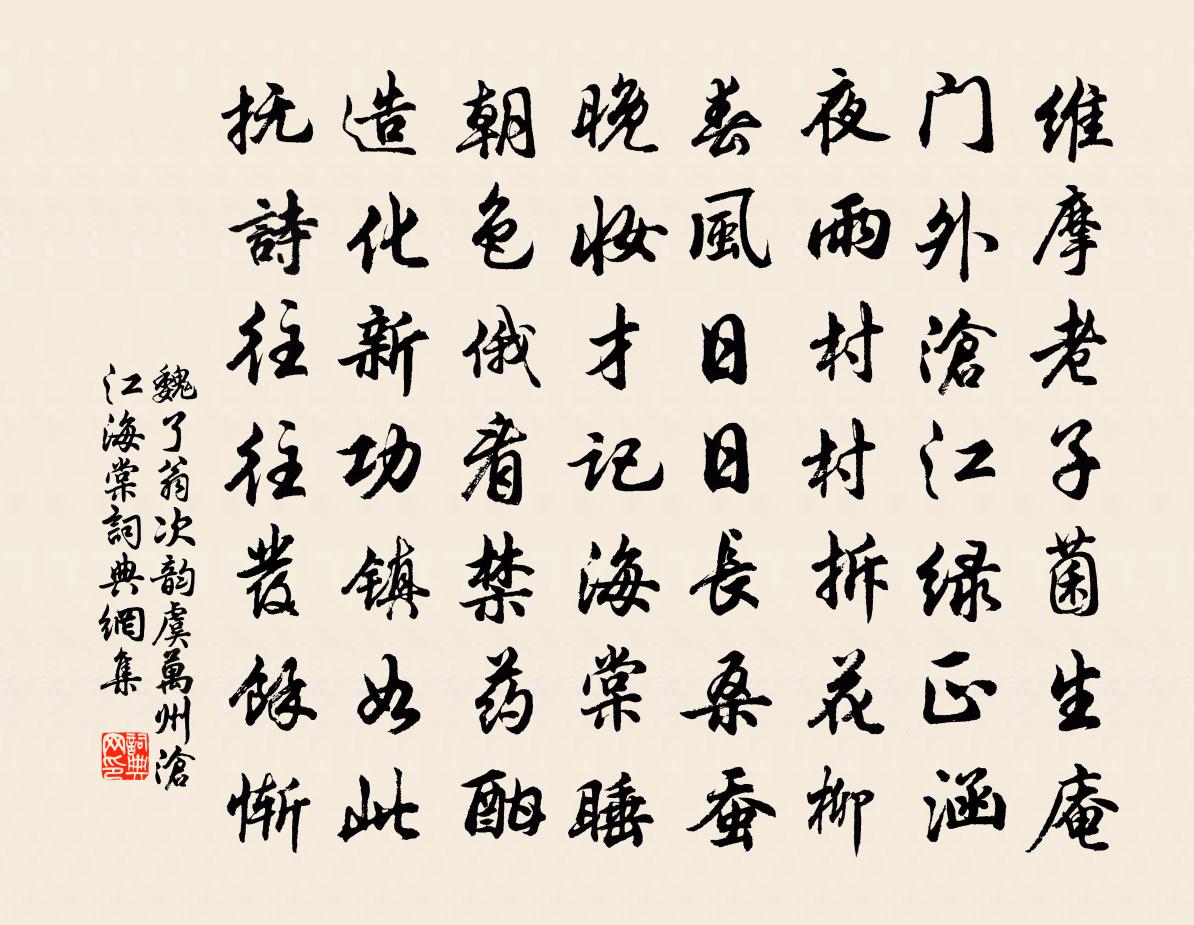 维摩老子菌生庵
门外滄江绿正涵
夜雨村村拆花柳
春風日日長桑蚕
晚妆才记海棠睡
朝色俄看禁药酣
造化新功镇如此
抚詩往往發餘惭
魏了翁次韵虞萬州滄
江海棠詞典網集
詞典
网印